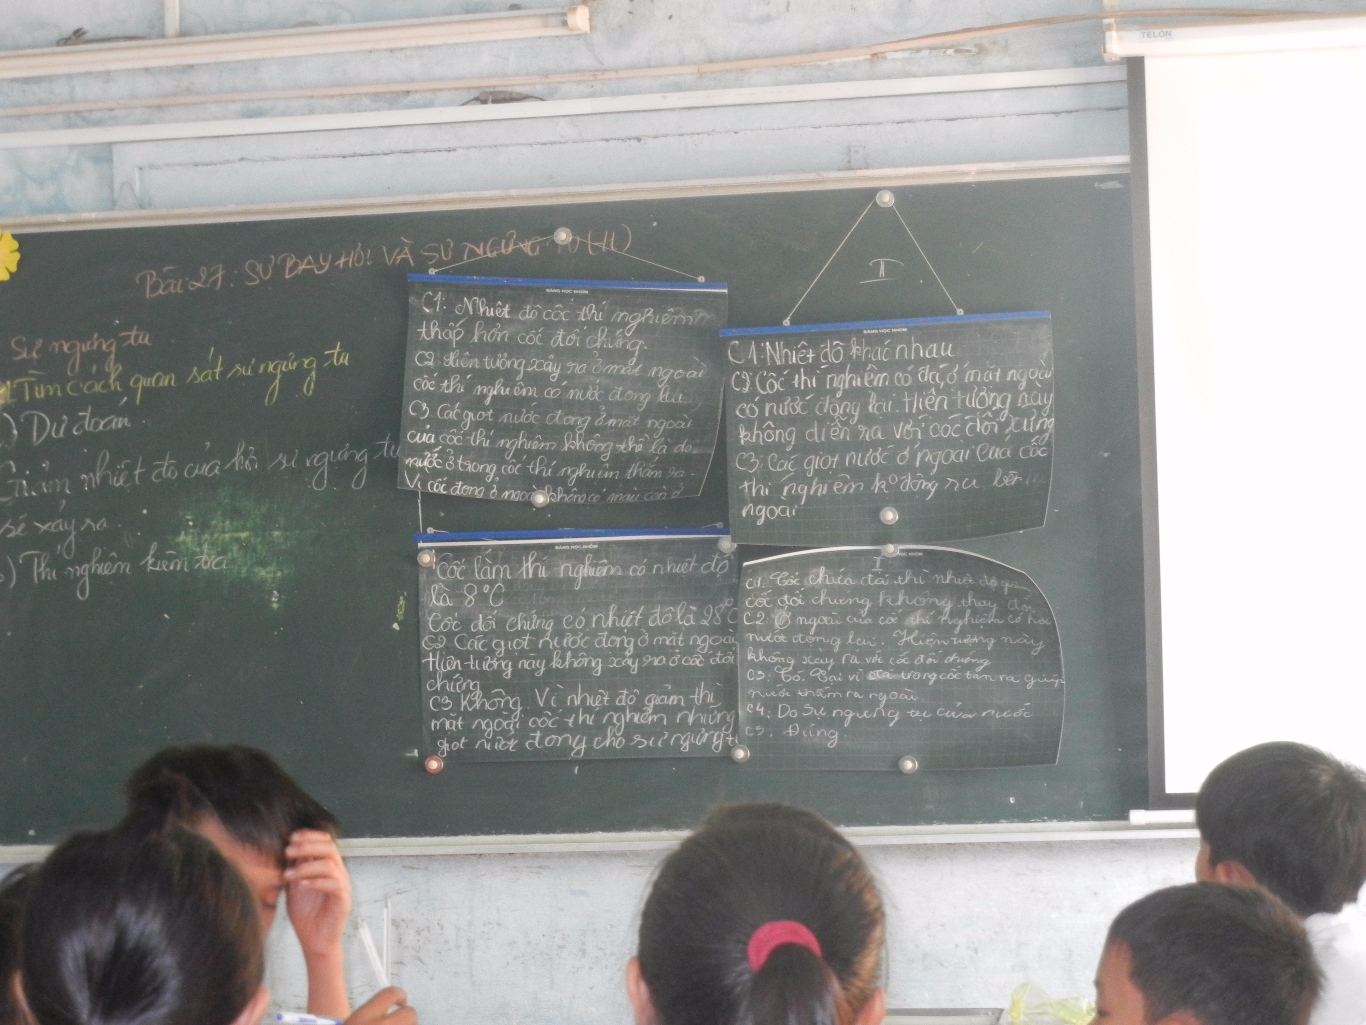 TELON
Bài 27: SỰ BAY HƠI VÀ SỰ NGƯNG TỤ (tt)
Sự ngưng tụ
Tìm cách quan sát sự ngưng tụ
) Dự đoán
Giảm nhiệt độ của hơi sự ngưng tụ
sẽ xảy ra.
) Thí nghiệm kiểm tra
BẢNG HỌC NHÓM
C1: Nhiệt độ cốc thí nghiệm
thấp hơn cốc đối chứng.
C2 Hiên tượng xảy ra ở mặt ngoài
cốc thí nghiệm có nước đọng lại
C3 Các giọt nước đọng ở mặt ngoài
của cốc thí nghiệm không thể là do
nước ở trong cốc thí nghiệm thấm ra
Vì cốc đọng ở ngoài không có màu còn ở
II
BẢNG HỌC NHÓM
C1: Nhiệt độ khác nhau
C2 Cốc thí nghiệm có đá, ở mặt ngoài
có nước động lại. Hiện tượng này
không diễn ra với cốc đối xứng
C3: Các giọt nước ở ngoài của cốc
thí nghiệm kº đọng su bên
ngoài
BẢNG HỌC NHÓM
Cốc làm thí nghiệm có nhiệt độ
là 8°C
Cốc đối chứng có nhiệt độ là 28°C
C2 Các giọt nước đọng ở mặt ngoài
Hiện tượng này không xảy ra ở cốc đối
chứng
C3 Không. Vì nhiệt độ giảm thì
mặt ngoài cốc thí nghiệm những
giọt nước đọng cho sự ngưng t
I
C1. Cốc chứa đá thì nhiệt độ
cốc đối chứng không thay đổi
C2. Ở ngoài của cốc thí nghiệm có hơi
nước đọng lại. Hiện tượng này
không xảy ra với cốc đối chứng
C3: Có. Tại vì đá trong cốc tan ra giúp
nước thấm ra ngoài
C4: Do sự ngưng tụ của nước
C5. Đúng